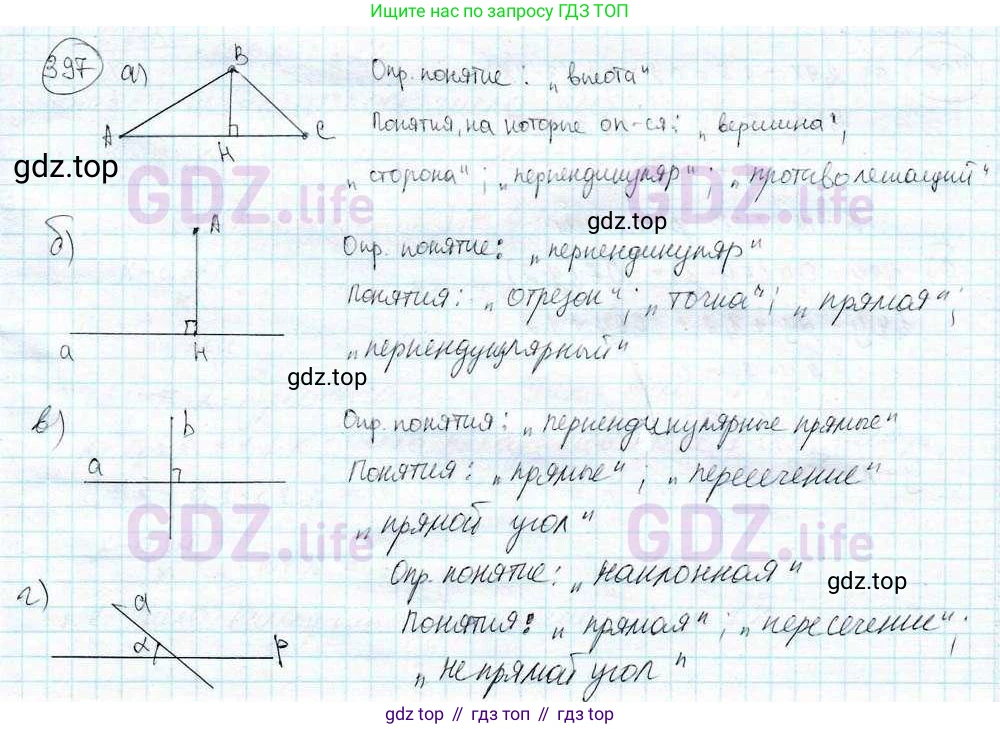 Ищите нас по запросу ГДЗ ТОП
397 а)
B
A
H
C
Опр. понятие: „высота"
Понятия, на которые оп-ся: „вершина",
„сторона"; „перпендикуляр"; „противолежащий"
gdz.top
GDZ.life
GDZ.life
gdz.top
б)
A
a
H
Опр. понятие: „перпендикуляр"
Понятия: „отрезок"; „точка"; „прямая";
„перпендикулярный"
gdz.top
в)
b
a
Опр. понятия: „перпендикулярные прямые"
Понятия: „прямые"; „пересечение"
„прямой угол"
GDZ.life
GDZ.life
г)
a
α
p
Опр. понятие: „наклонная"
gdz.top
Понятия: „прямая"; „пересечение";
„непрямой угол"
gdz.top // гдз топ // gdz top